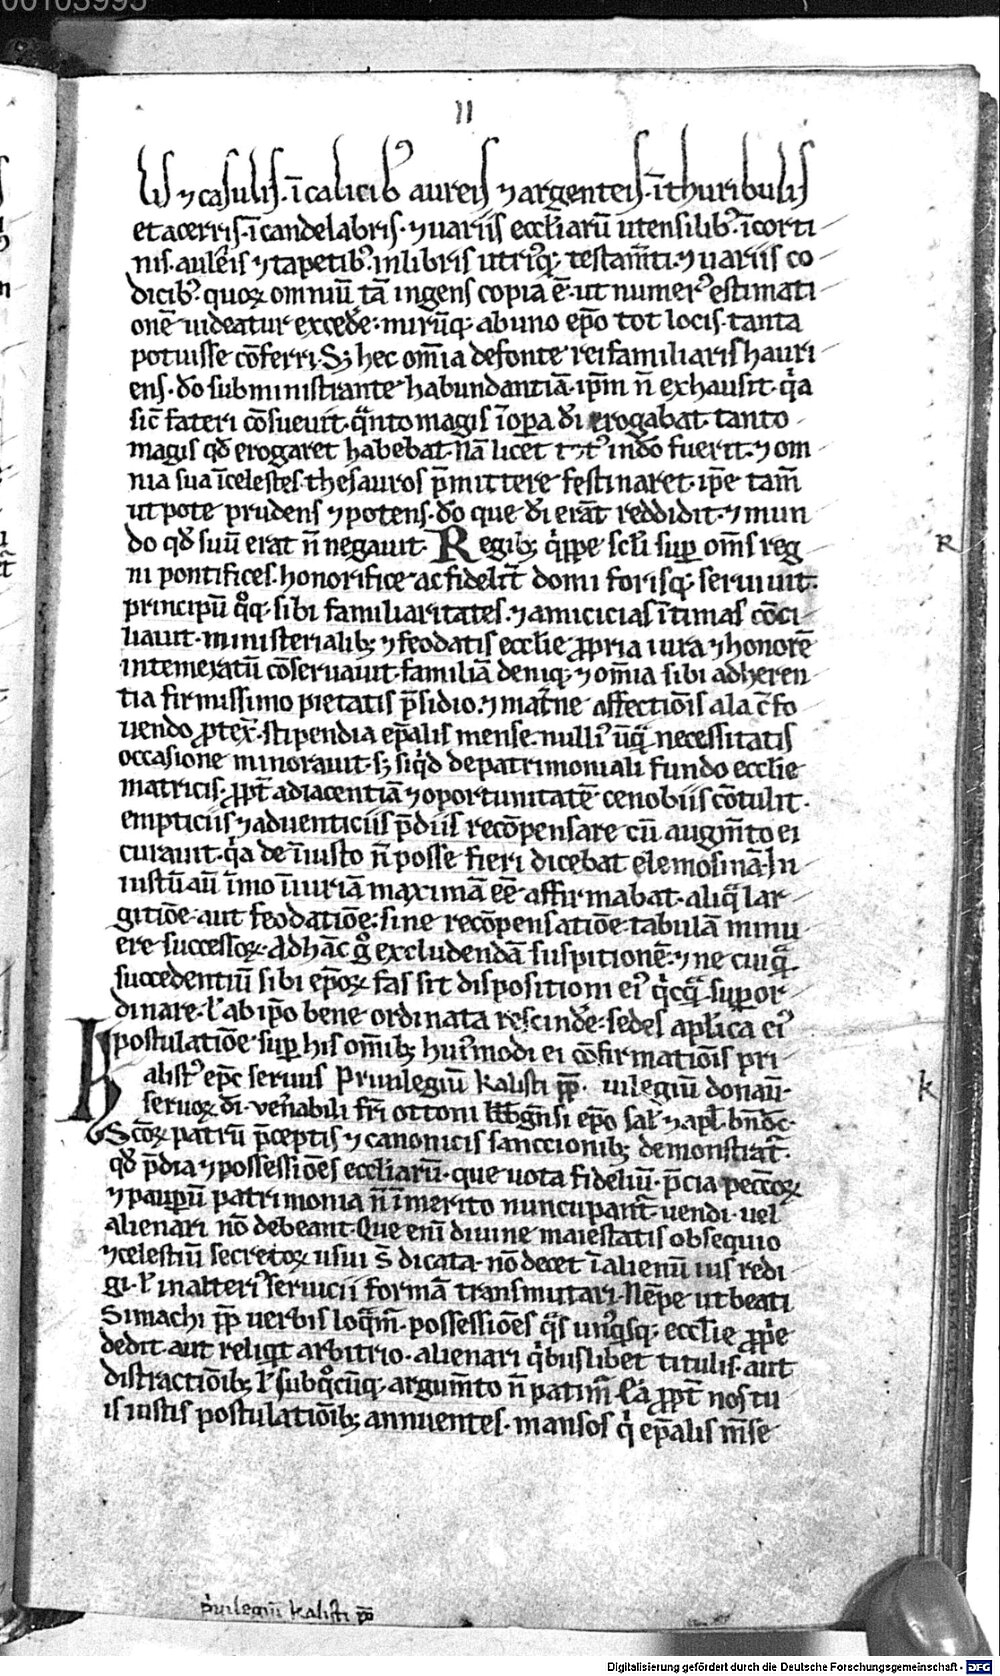 00103995
11
lis ⁊ casulis. ī calicib᷒ aureis ⁊ argenteis. ī thuribulis
et acerris. ī candelabris. ⁊ uariis eccl̄iarū utensilib᷒. ī corti
nis. auleis ⁊ tapetib᷒. in libris utriꝰq; testam̄ti. ⁊ uariis co
dicib᷒. quoꝝ omniū tā ingens copia ē. ut numerꝰ estimati
onē uideatur excedˀe. mirūq; ab uno ep̄o tot locis. tanta
potuisse cōferri. Sꝫ hec om̄ia de fonte rei familiaris hauri
ens. dō subministrante habundantiā. ip̄m n̄ exhausit. qͥa
sic̄ fateri cōsueuit. qͣnto magis ī oꝑa dī erogabat. tanto
magis qđ erogaret habebat. Nā licet totꝰ in dō fuerit. ⁊ om
nia sua ī celestes thesauros p̄mittere festinaret. ip̄e tam̄
ut pote prudens ⁊ potens. dō que dī erāt reddidit. ⁊ mun
do qđ suū erat n̄ negauit. Regibꝫ qͥppe sc̄li suꝑ om̄s reg
ni pontifices. honorifice ac fidelit̄ domi forisq; seruiuit.
principū qͦq; sibi familiaritates. ⁊ amicicias ītimas cōci
liauit. ministerialibꝫ ⁊ feodatis eccl̄ie ꝓpria iura ⁊ honorē
intemeratū cōseruauit. familiā deniq; ⁊ om̄ia sibi adheren
tia firmissimo pietatis p̄sidio. ⁊ mat̄ne affectiōis ala c̄fo
uendo ꝓtex̄. stipendia ep̄alis mense. nulliꝰ ūqͣ necessitatis
occasione minorauit. sꝫ siqͥd de patrimoniali fundo eccl̄ie
matricis. ꝓpt̄ adiacentiā ⁊ oportunitatē cenobiis cōtulit.
empticiis ⁊ aduenticiis p̄diis recōpensare cū augm̄to ei
curauit. qͥa de īiusto n̄ posse fieri dicebat elemosinā. In
iustū aū īmo īiuriā maximā eē affirmabat. aliqͣ lar
gitiōe. aut feodatiōe. sine recōpensatiōe. tabulā minu
ere successoꝝ. Ad hāc gͦ excludendā suspitionē. ⁊ ne cuiqͣ
succedentiū sibi ep̄oꝝ fas sit dispositioni eiꝰ qͥcqͣ suꝑor
dinare. ł ab ip̄o bene ordinata rescindˀe. sedes ap̄lica eiꝰ
postulatiōe. suꝑ his om̄ibꝫ huiꝰmodi ei cōfirmatiōis pri
Kalistꝰ ep̄c seruus Priuilegiū kalisti pp̄. uilegiū donau̅.
seruoꝝ dī. uen̄abili fr̄i ottoni bbgn̄si ep̄o sał ⁊ apł. bn̄dc̄.
Sc̄oꝝ patrū p̄ceptis ⁊ canonicis sanccionibꝫ demonstrat̄.
qđ p̄dia ⁊ possessiōes eccl̄iarū. que uota fideliū. p̄cia pecc̄oꝝ
⁊ pauꝑū patrimonia n̄ īmerito nuncupant̄. uendi uel
alienari nō debeant. Que enī diuine maiestatis obsequio
⁊ celestiū secretoꝝ usui s̄ dicata. nō decet ī alienū ius redi
gi. ł in alteriꝰ seruicii formā transmutari. Nēpe ut beati
Simachi pp̄ uerbis loqͣm̄. possessiōes qͣs unꝰqͥsq; eccl̄ie ꝓpͥe
dedit. aut reliqͥt arbitrio. alienari qͥbuslibet titulis. aut
distractiōibꝫ ł subqͦcūq; argum̄to n̄ patim̄. Ea ꝓpt̄ nos tu
is iustis postulatiōibꝫ annuentes. mansos qͥ ep̄alis m̄se
R
k
pͥuilegiū kalisti pp̄
Digitalisierung gefördert durch die Deutsche Forschungsgemeinschaft - DFG